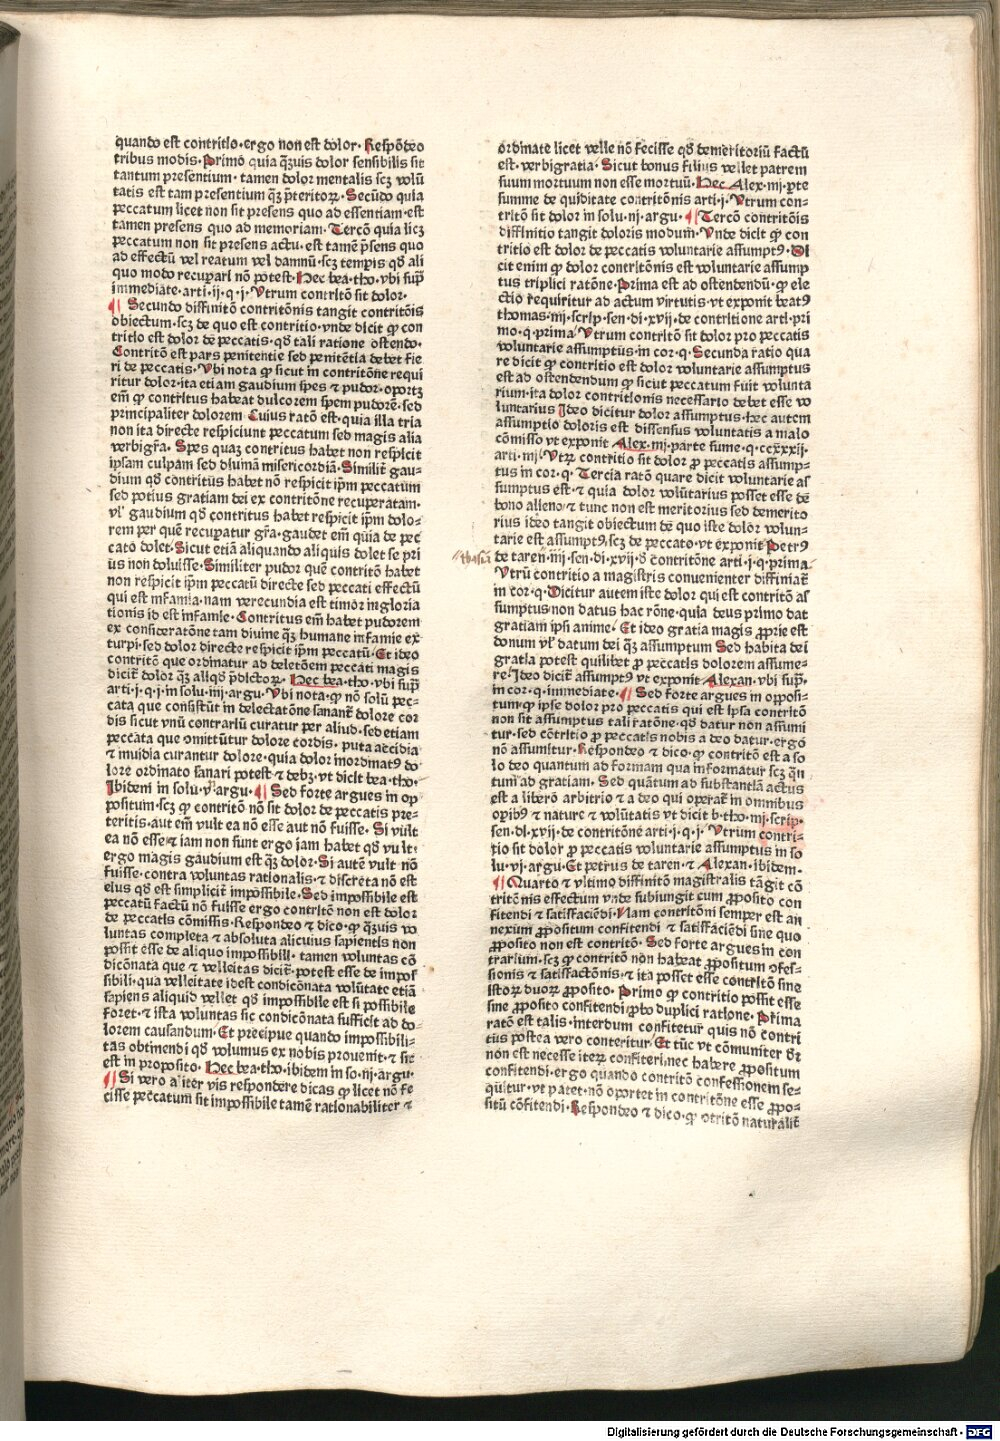 quando est contritio·ergo non est dolor· Respōdeo
tribus modis· Primo quia qꝫuis dolor sensibilis sit
tantum presentium· tamen dolor mentalis scꝫ volū
tatis est tam presentium qꝫ p̄teritoꝝ· Secūdo quia
peccatum licet non sit presens quo ad essentiam·est
tamen presens quo ad memoriam· Tercō quia licꝫ
peccatum non sit presens actu·est tamē p̄sens quo
ad effectū vel reatum vel damnū·scꝫ tempis qđ ali
quo modo recuꝑari nō potest·Hec bea·tho·vbi sup̄
immediate·arti·ij·q·j·Vtrum contritō sit dolor·
¶ Secundo diffinitō contritōnis tangit contritōis
obiectum·scꝫ de quo est contritio·vnde dicit ꝙ con
tritio est dolor de peccatis·qđ tali ratione ostendo·
Contritō est pars penitentie sed penitētia debet fie
ri de peccatis·Vbi nota ꝙ sicut in contritōne requi
ritur dolor·ita etiam gaudium spes ⁊ pudor·oportꝫ
em̄ ꝙ contritus habeat dulcorem spem pudorē·sed
principaliter dolorem Cuius ratō est·quia illa tria
non ita directe respiciunt peccatum sed magis alia
verbigr̄a· Spes quaꝫ contritus habet non respicit
ipsam culpam sed diuinā misericordiā·Similit̄ gau-
dium qđ contritus habet nō respicit ip̄m peccatum
sed potius gratiam dei ex contritōne recuperatam·
vl' gaudium qđ contritus habet respicit ip̄m dolo-
rem per quē recuꝑatur gr̄a·gaudet em̄ quia de pec
cato dolet·Sicut etiā aliquando aliquis dolet se pri
us non doluisse·Similiter pudor quē contritō habet
non respicit ip̄m peccatū directe sed peccati effectū
qui est infamia·nam verecundia est timor ingloria
tionis id est infamie·Contritus em̄ habet pudorem
ex consiceratōne tam diuine qꝫ humane infamie ex
turpi·sed dolor directe respicit ip̄m peccatū·Et ideo
contritō que ordinatur ad deletōem peccati magis
dicit̄ dolor qꝫ aliqđ p̄dictoꝝ·Hec bea·tho·vbi sup̄
arti·j·q·j·in solu·iij·argu·Vbi nota·ꝙ nō solū pec-
cata que consistūt in delectatōne sanant̄ dolore cor
dis sicut vnū contrariū curatur per aliud·sed etiam
peccata que omittūtur dolore cordis· puta accidia
⁊ inuidia curantur dolore·quia dolor inordinatꝰ do
lore ordinato sanari potest ⁊ debꝫ·vt dicit bea·tho·
Ibidem in solu·v·argu·¶ Sed forte argues in op
positum·scꝫ ꝙ contritō nō sit dolor de peccatis pre-
teritis·aut em̄ vult ea nō esse aut nō fuisse· Si vult
ea nō esse ⁊ iam non sunt ergo iam habet qđ vult·
ergo magis gaudium est qꝫ dolor·Si autē vult nō
fuisse·contra voluntas rationalis ⁊ discreta nō est
eius qđ est simplicit̄ impossibile·Sed impossibile est
peccatū factū nō fuisse ergo contritō non est dolor
de peccatis cōmissis·Respondeo ⁊ dico·ꝙ qꝫuis vo
luntas completa ⁊ absoluta alicuius sapientis non
possit esse de aliquo impossibili· tamen voluntas cō
dicōnata que ⁊ velleitas dicit̄·potest esse de impos
sibili·qua velleitate idest condicōnata volūtate etiā
sapiens aliquid vellet qđ impossibile est si possibile
foret·⁊ ista voluntas sic condicōnata sufficit ad do-
lorem causandum·Et precipue quando impossibili-
tas obtinendi qđ volumus ex nobis prouenit·⁊ sic
est in proposito·Hec bea·tho·ibidem in so·iij·argu·
¶ Si vero aliter vis respondere dicas ꝙ licet nō fe
cisse peccatum sit impossibile tamē rationabiliter ⁊
ordinate licet velle nō fecisse qđ demeritoriū factū
est·verbigratia·Sicut bonus filius vellet patrem
suum mortuum non esse mortuū·Hec Alex·iiij·ꝑte
summe de quiditate contritōnis arti·j·Vtrum con-
tritō sit dolor in solu·iij·argu·¶ Tercō contritōis
diffinitio tangit doloris modum·Vnde dicit ꝙ con
tritio est dolor de peccatis voluntarie assumptꝰ·Di
cit enim ꝙ dolor contritōnis est voluntarie assump
tus triplici ratōne·Prima est ad ostendendū·ꝙ ele
ctio requiritur ad actum virtutis·vt exponit beatꝰ
thomas·iiij·scrip·sen·di·xvij·de contritione arti·pri
mo·q·prima·Vtrum contritō sit dolor pro peccatis
voluntarie assumptus·in cor·q·Secunda ratio qua
re dicit ꝙ contritio est dolor voluntarie assumptus
est ad ostendendum ꝙ sicut peccatum fuit volunta
rium·ita dolor contritionis necessario debet esse vo
luntarius Ideo dicitur dolor assumptus·hec autem
assumptio doloris est dissensus voluntatis a malo
cōmisso vt exponit Alex·iiij·parte sume·q·ccxxxij·
arti·iiij·Vtꝝ contritio sit dolor ꝓ peccatis assump-
tus in cor·q·Tercia ratō quare dicit voluntarie as
sumptus est·⁊ quia dolor volūtarius posset esse de
bono alieno ⁊ tunc non est meritorius sed demerito
rius ideo tangit obiectum de quo iste dolor volun-
tarie est assumptꝰ·scꝫ de peccato·vt exponit Petrꝰ
de taren·iiij·sen·di·xvij·đ contritōne arti·j·q·prima·
Vtrū contritio a magistris conuenienter diffiniat̄
in cor·q·Dicitur autem iste dolor qui est contritō as
sumptus non datus hac rōne·quia deus primo dat
gratiam ipsi anime· Et ideo gratia magis ꝓprie est
donum vl' datum dei qꝫ assumptum Sed habita dei
gratia potest quilibet ꝓ peccatis dolorem assume-
re·Ideo dicit̄ assumptꝰ vt exponit Alexan·vbi sup̄·
in cor·q·immediate·¶ Sed forte argues in opposi-
tum·ꝙ ipse dolor pro peccatis qui est ipsa contritō
non sit assumptus tali ratōne·qđ datur non assumi
tur·sed cōtritio ꝓ peccatis nobis a deo datur·ergo
nō assumitur·Respondeo ⁊ dico·ꝙ contritō est a so
lo deo quantum ad formam qua informatur scꝫ q̄n
tum ad gratiam· Sed quātum ad substantiā actus
est a libero arbitrio ⁊ a deo qui operat̄ in omnibus
oꝑibꝰ ⁊ nature ⁊ volūtatis vt dicit b·tho·iiij·scrip·
sen·di·xvij·de contritōne arti·j·q·j· Vtrum contri-
tio sit dolor ꝓ peccatis voluntarie assumptus in so
lu·vj·argu·Et petrus de taren·⁊ Alexan·ibidem·
¶ Quarto ⁊ vltimo diffinitō magistralis tāgit cō
tritōnis effectum vnde subiungit cum ꝓposito con
fitendi ⁊ satisfaciēdi·Nam contritōni semper est an
nexum ꝓpositum confitendi ⁊ satisfaciēdi sine quo
ꝓposito non est contritō· Sed forte argues in con
trarium·scꝫ ꝙ contritō non habeat ꝓpositum ꝯfes-
sionis ⁊ satisfactōnis·⁊ ita posset esse contritō sine
istoꝝ duoꝝ ꝓposito· Primo ꝙ contritio possit esse
sine ꝓposito confitendi ꝓbo duplici ratione· Prima
ratō est talis·interdum confitetur quis nō contri
tus postea vero conteritur·Et tūc vt cōmuniter dr̄
non est necesse iteꝝ confiteri·nec habere ꝓpositum
confitendi·ergo quando contritō confessionem se-
quitur·vt patet·nō oportet in contritōne esse ꝓpo-
sitū cōfitendi·Respondeo ⁊ dico·ꝙ ꝯtritō naturalit̄
Digitalisierung gefördert durch die Deutsche Forschungsgemeinschaft - DFG